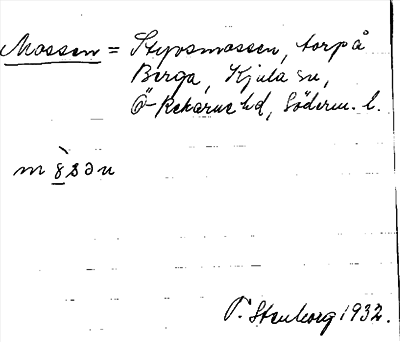 Mossen = Styvsmossen, torp å
Berga, Kjula sn,
Ö-Rekarne hd, Söderm. l.
m ȣ̀ s ə n
P. Stenborg 1932.